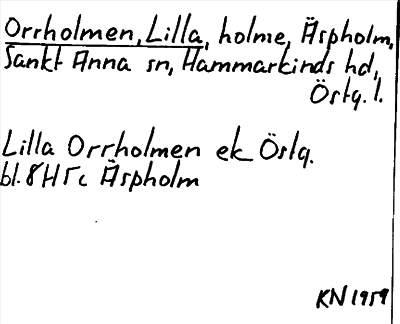 Orrholmen, Lilla, holme, Äspholm,
Sankt Anna sn, Hammarkinds hd,
Östg. l.
Lilla Orrholmen ek Östg.
bl. 8H5c Äspholm
KN 1959